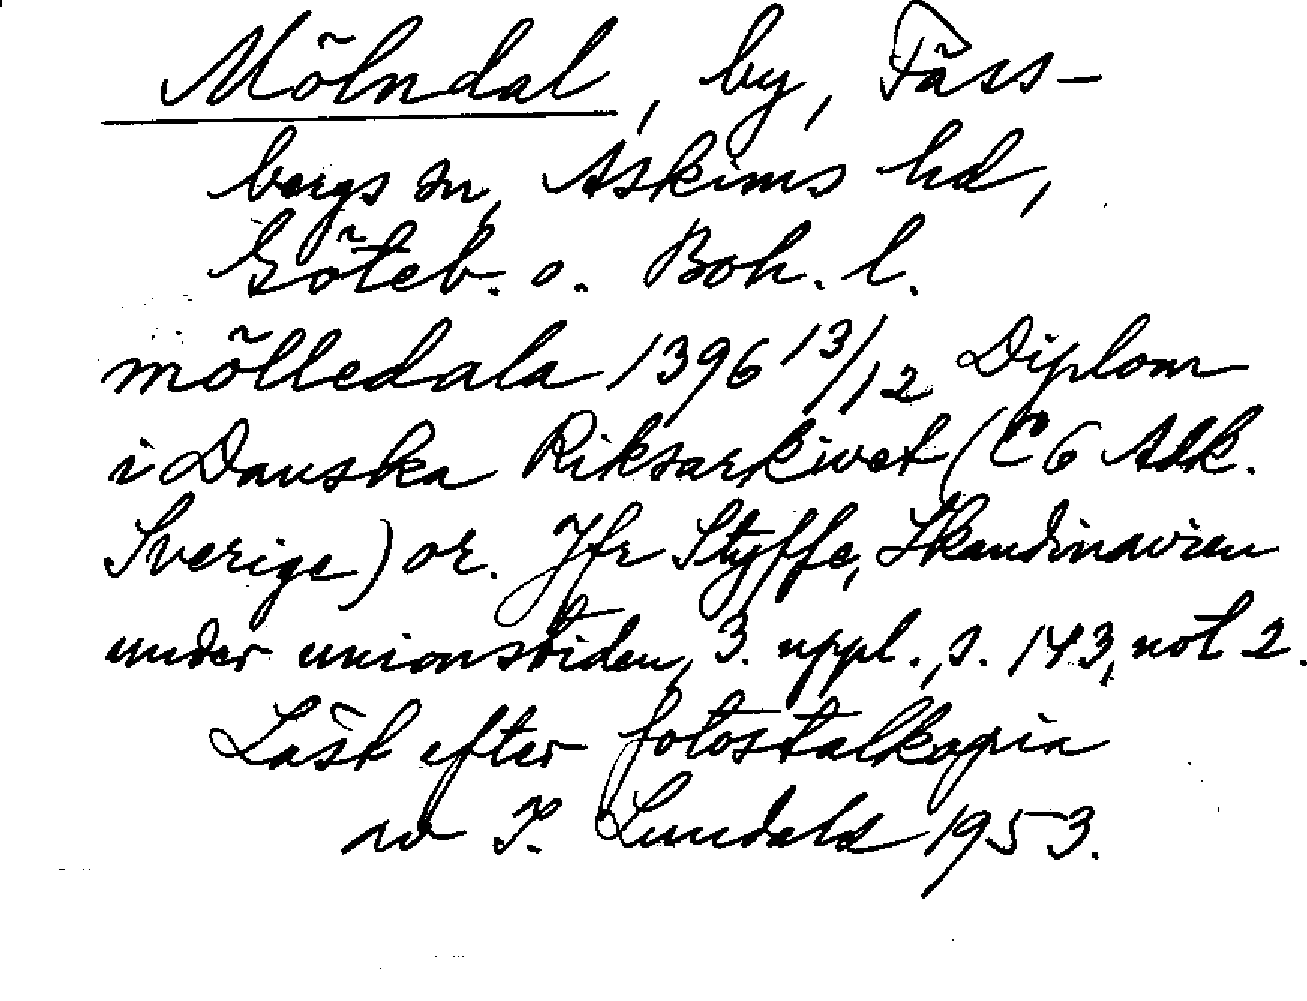 Mölndal, by, Fäss-
bergs sn, Askims hd,
Göteb. o. Boh. l.
mölledala 1396 13/12 Diplom
i Danska Riksarkivet (C6 Adk.
Sverige) or. Jfr Styffe, Skandinavien
under unionstiden, 3. uppl., s. 143, not 2.
Läst efter fotostatkopia
av I. Lundahl 1953.